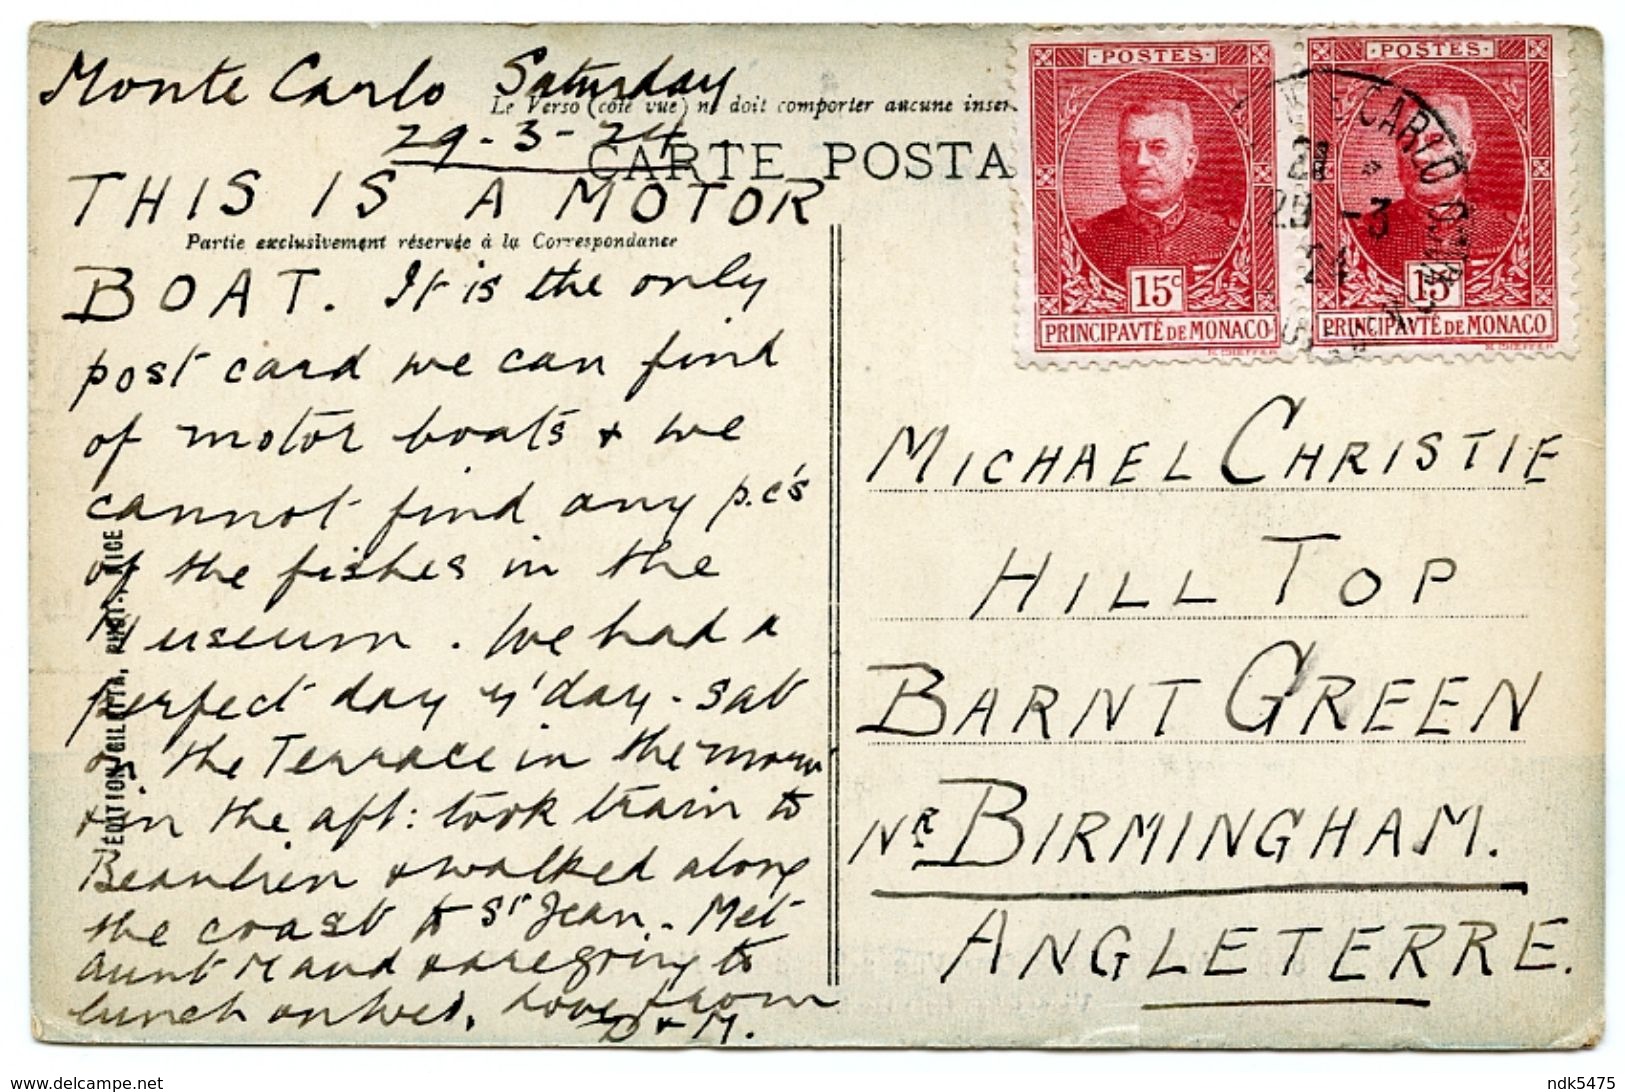 Monte Carlo Saturday
Le Verso (côté vue) ne doit comporter aucune inser
29-3-24
CARTE POSTA
THIS IS A MOTOR
Partie exclusivement réservée à la Correspondance
BOAT. It is the only
post card we can find
of motor boats & we
cannot find any p.c's
of the fishes in the
Museum. We had a
perfect day y'day - sat
on the Terrace in the morn
& in the aft: took train to
Beaulieu & walked along
the coast to St Jean. - Met
Aunt Maud & are going to
lunch on Wed. Love from
D & M.
EDITION GILETTA, PHOT. NICE
POSTES
15c
PRINCIPAVTÉ DE MONACO
POSTES
15c
PRINCIPAVTÉ DE MONACO
CARLO
29 -3
24
MICHAEL CHRISTIE
HILL TOP
BARNT GREEN
NR BIRMINGHAM.
ANGLETERRE.
www.delcampe.net
ndk5475